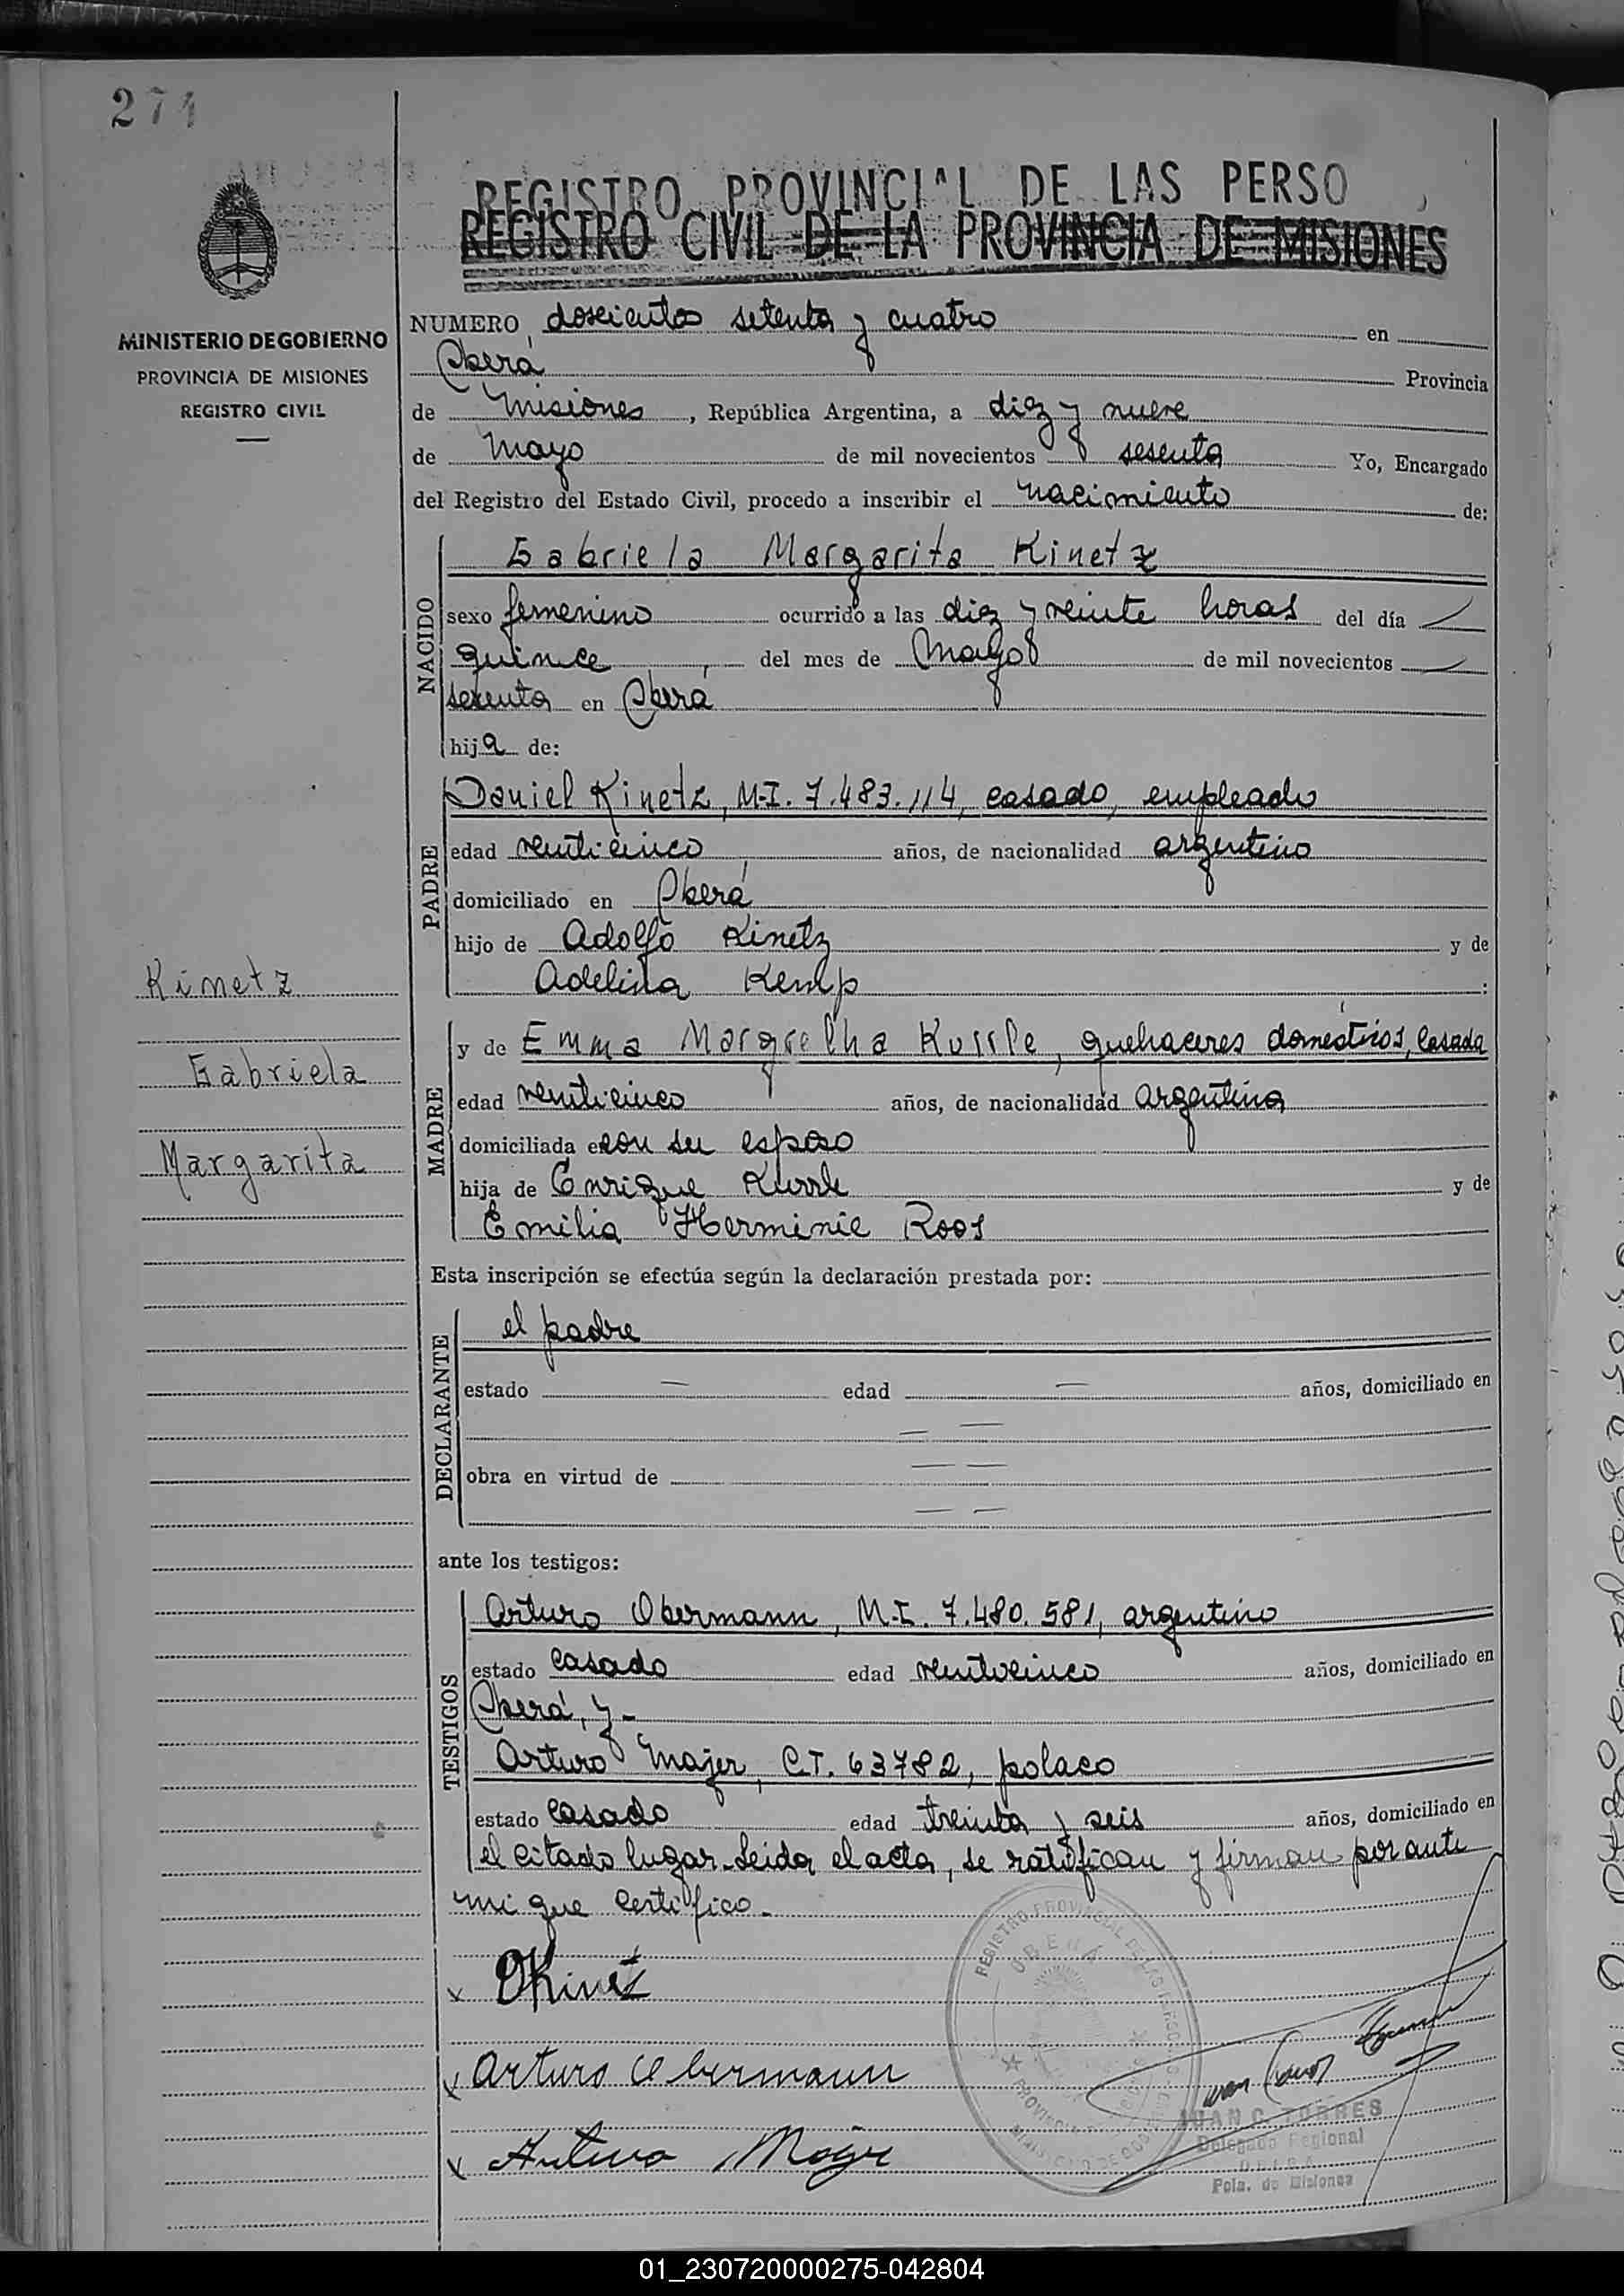 274
REGISTRO PROVINCIAL DE LAS PERSO
REGISTRO CIVIL DE LA PROVINCIA DE MISIONES
MINISTERIO DE GOBIERNO
PROVINCIA DE MISIONES
REGISTRO CIVIL
NUMERO doscientos setenta y cuatro en
Oberá Provincia
de Misiones, República Argentina, a diez y nueve
de Mayo de mil novecientos sesenta Yo, Encargado
del Registro del Estado Civil, procedo a inscribir el nacimiento de:
NACIDO
Gabriela Margarita Kinetz
sexo femenino ocurrido a las diez y veinte horas del día
quince del mes de Mayo de mil novecientos
sesenta en Oberá
hija de:
PADRE
Daniel Kinetz, M.I. 7.483.114, casado, empleado
edad venticinco años, de nacionalidad argentino
domiciliado en Oberá
hijo de Adolfo Kinetz y de
Adelina Kemp
Kinetz
Gabriela
Margarita
MADRE
y de Emma Kurrle, quehaceres domésticos, casada
edad venticinco años, de nacionalidad argentina
domiciliada con su esposo
hija de Enrique Kurrle y de
Emilia Herminie Roos
Esta inscripción se efectúa según la declaración prestada por:
DECLARANTE
el padre
estado — edad — años, domiciliado en
— —
obra en virtud de — —
— —
ante los testigos:
TESTIGOS
Arturo Obermann, M.I. 7.480.581, argentino
estado casado edad venticinco años, domiciliado en
Oberá, y-
Arturo Majer, C.I. 63782, polaco
estado casado edad treinta y seis años, domiciliado en
el citado lugar. Leida el acta, se ratifican y firman por ante
mi que certifico.-
x DKinetz
x Arturo Obermann
x Arturo Majer
REGISTRO PROVINCIAL DE LAS PERSONAS
OBERA
JUAN C. TORRES
Delegado Regional
Pcia. de Misiones
01_230720000275-042804